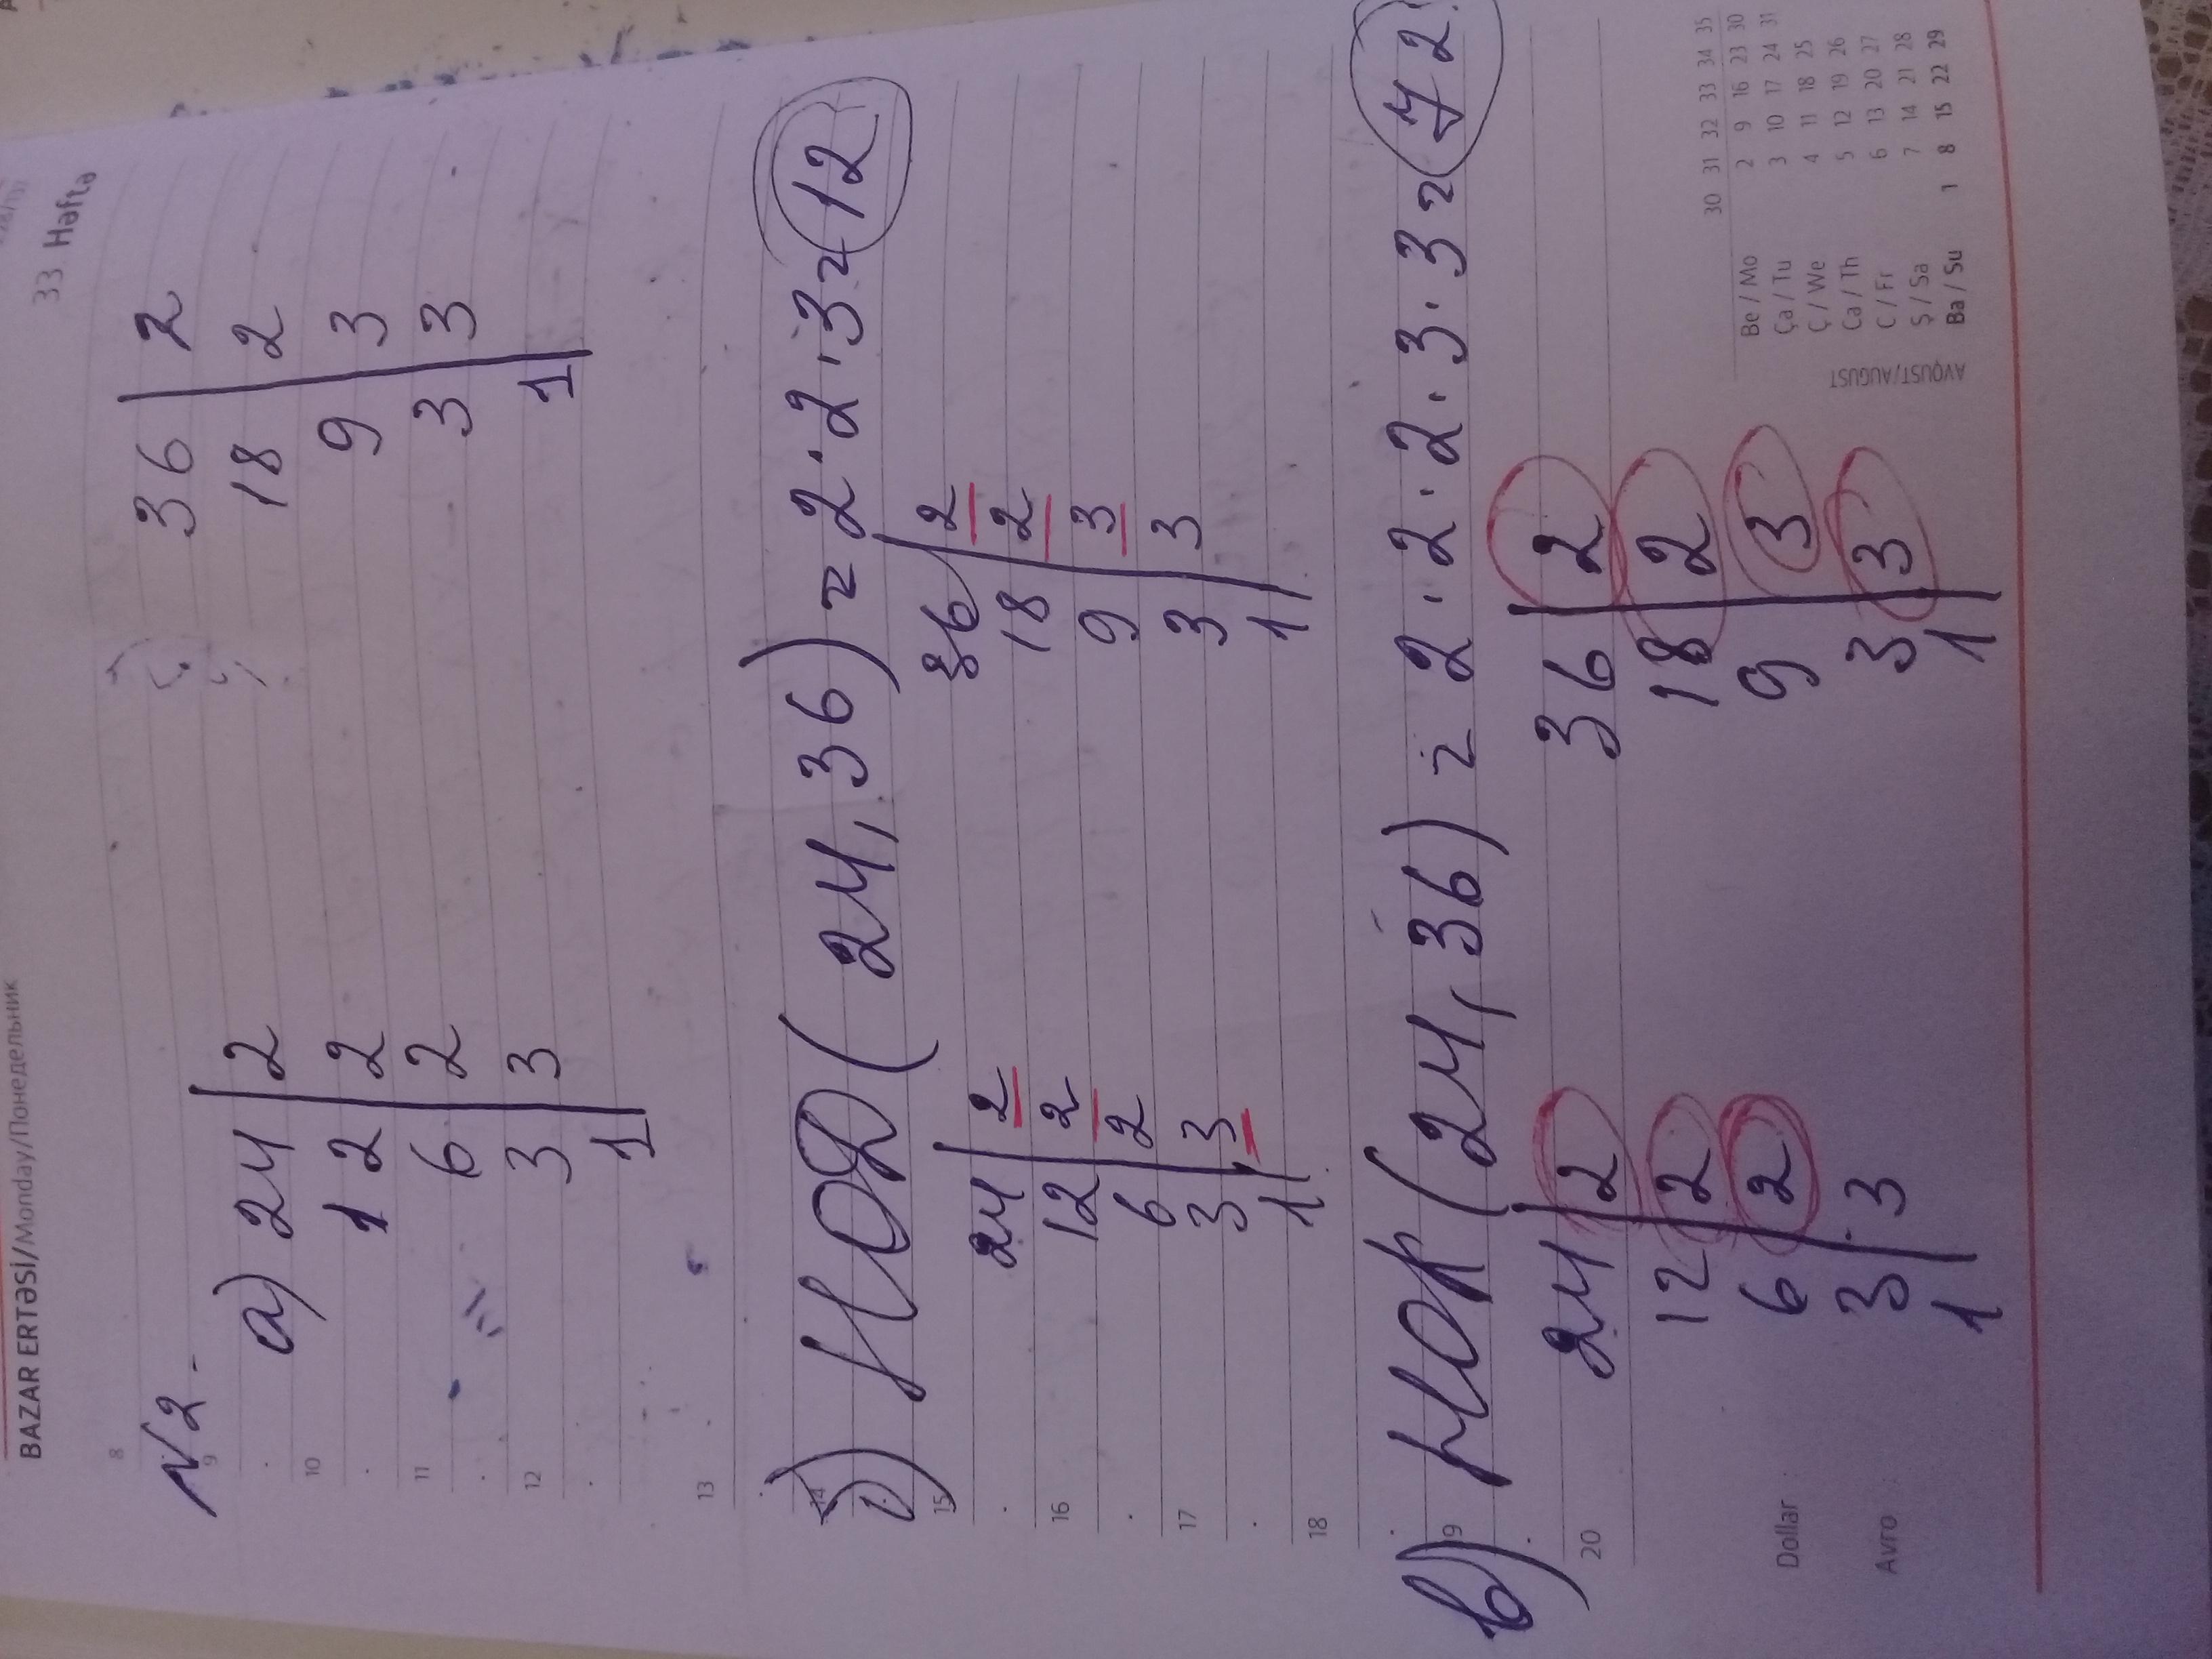 BAZAR ERTƏSİ/Monday/Понедельник
33 Həftə
8
N2
9
а) 24 | 2 36 | 2
10
12 | 2 18 | 2
11
6 | 2 9 | 3
12
3 | 3 3 | 3
1 1
13
14
б) НОД (24, 36) = 2 · 2 · 3 = 12
15
24 | 2 36 | 2
16
12 | 2 18 | 2
6 | 2 9 | 3
17
3 | 3 3 | 3
1 1
18
19
в) НОК (24, 36) = 2 · 2 · 2 · 3 · 3 = 72
20
24 | 2 36 | 2
12 | 2 18 | 2
6 | 2 9 | 3
3 | 3 3 | 3
1 1
Dollar
Avro
AVQUST/AUGUST
30 31 32 33 34 35
Be / Mo 2 9 16 23 30
Ça / Tu 3 10 17 24 31
Ç / We 4 11 18 25
Ca / Th 5 12 19 26
C / Fr 6 13 20 27
Ş / Sa 7 14 21 28
Ba / Su 1 8 15 22 29